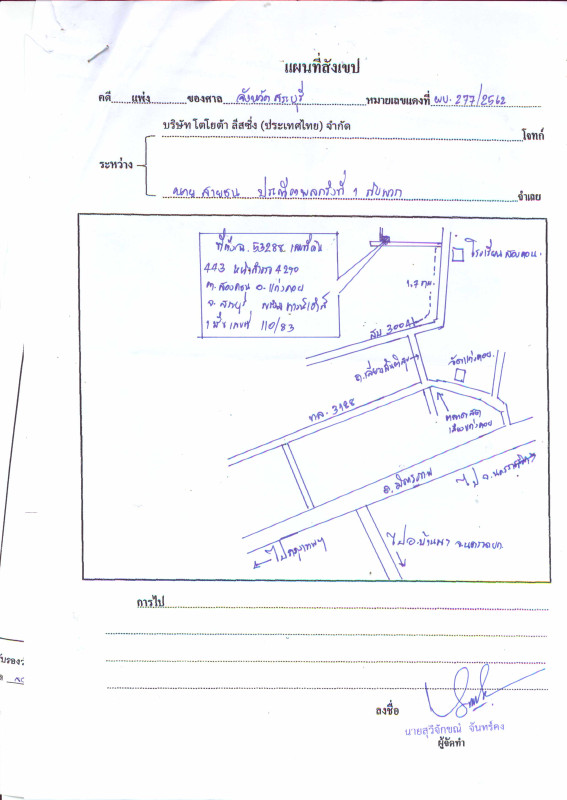 แผนที่สังเขป
คดี แพ่ง ของศาล จังหวัดสระบุรี หมายเลขแดงที่ ผบ. 277/2562
บริษัท โตโยต้า ลีสซิ่ง (ประเทศไทย) จำกัด โจทก์
ระหว่าง
นาย สายชน กับพวก จำเลย
ที่ดิน ฉ. 53288 เลขที่ดิน
443 หน้าสำรวจ 4290
ต. สองคอน อ. แก่งคอย
จ. สระบุรี
110/83
โรงเรียนสองคอน.
1.7 กม.
สบ 3004
วัดแก่งคอย
ทล. 3188
ตลาดสด
เมืองแก่งคอย
ถ. มิตรภาพ
ไป จ. นครราชสีมา
ไปกรุงเทพฯ
ไป อ. บ้านนา จ. นครนายก
การไป
ลงชื่อ
นายสุวิจักขณ์ จันทร์คง
ผู้จัดทำ
รับรอง